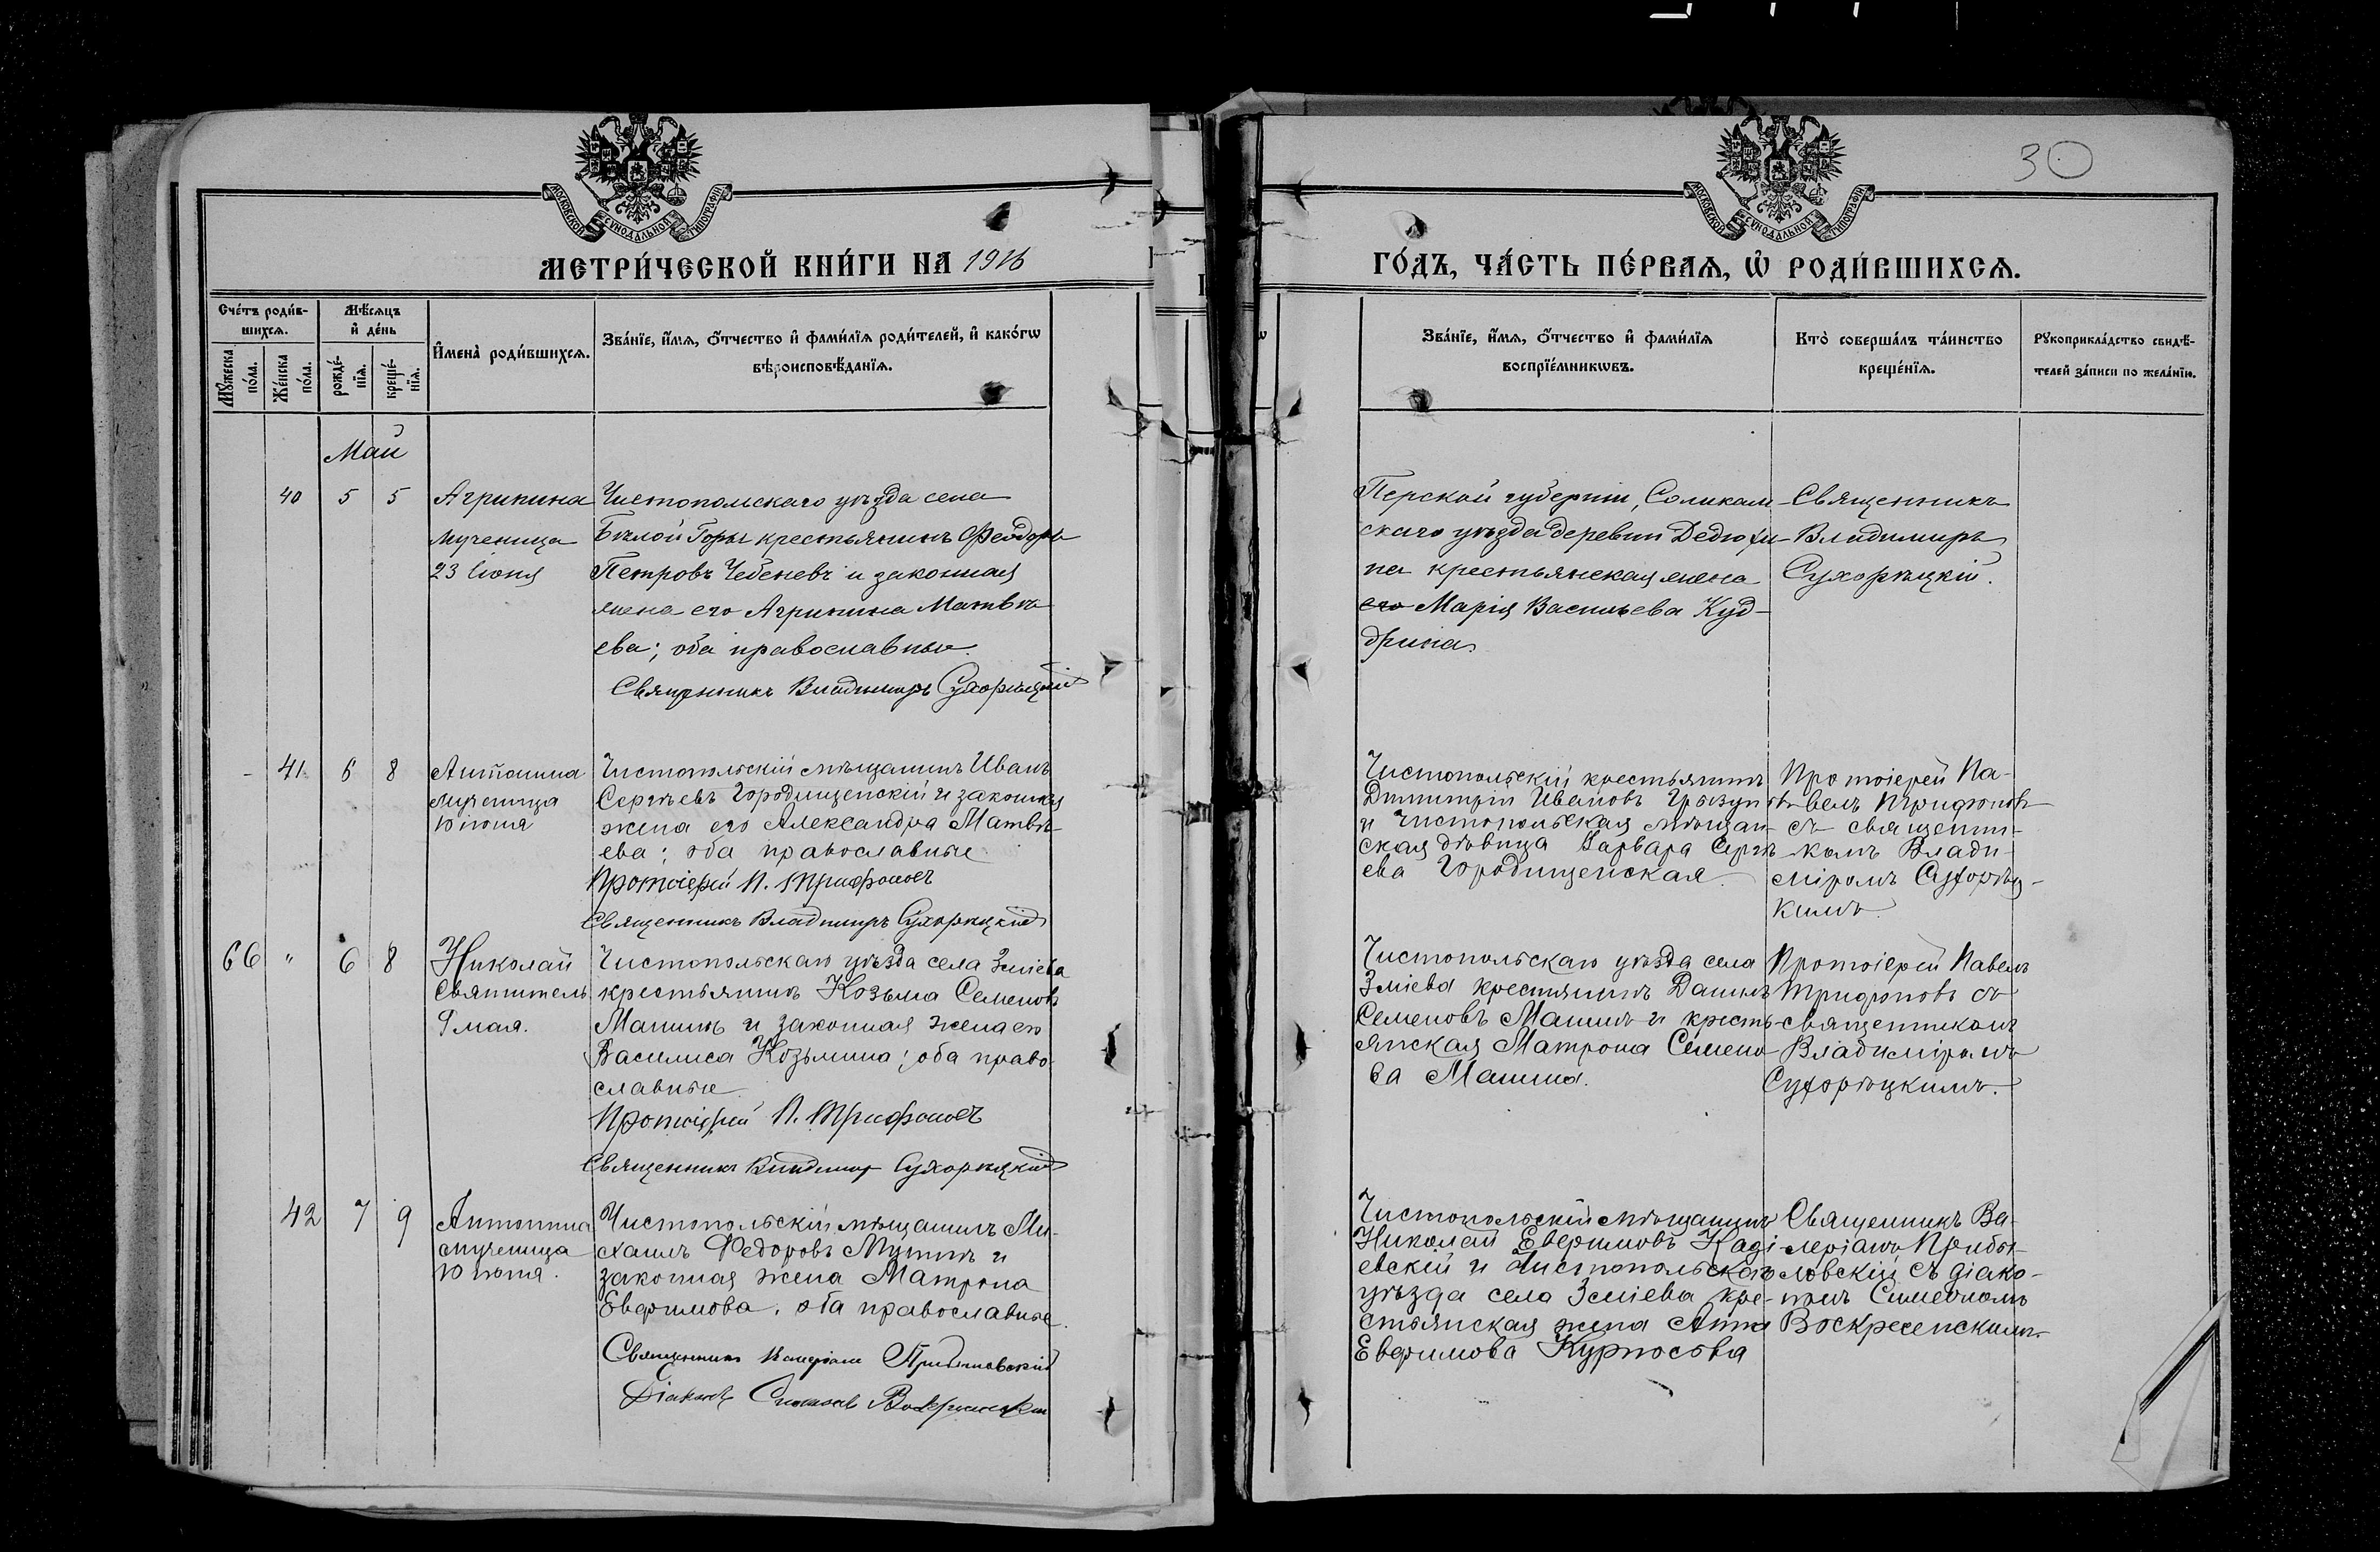 30
МОСКОВСКОЙ СУНОДАЛЬНОЙ ТИПОГРАФІИ
МОСКОВСКОЙ СУНОДАЛЬНОЙ ТИПОГРАФІИ
МЕТРИ́ЧЕСКОЙ КНИ́ГИ НА 1916
ГО́ДЪ, ЧА́СТЬ ПЕ́РВАѦ, Ѡ҆ РОДИ́ВШИХСѦ.
Сче́тъ роди́в-
шихсѧ.
Мꙋ́жеска
по́ла.
Же́нска
по́ла.
Мѣ́сѧцъ
и҆ де́нь
рожде́-
нїѧ.
креще́-
нїѧ.
И҆мена̀ роди́вшихсѧ.
Зва́нїе, и҆́мѧ, ѻ҆́тчество и҆ фами́лїѧ роди́телей, и҆ како́гѡ
вѣроисповѣ́данїѧ.
Зва́нїе, и҆́мѧ, ѻ҆́тчество и҆ фами́лїѧ
воспрїе́мникѡвъ.
Кто̀ соверша́лъ та́инство
креще́нїѧ.
Рꙋкоприкла́дство свидѣ́-
телей за́писи по жела́нїю.
Май
40 5 5
Агрипина
мученица
23 Іюня
Чистопольскаго уѣзда села
Бѣлой Горы крестьянинъ Феодоръ
Петровъ Чебеневъ и законная
жена его Агрипина Матвѣ-
ева; оба православные.
Священникъ Владимиръ Сухорѣцкій
Перской губерніи, Соликам-
скаго уѣзда деревни Дедюхи-
на крестьянская жена
его Марія Васильева Куд-
дрина
Священникъ
Владимиръ
Сухорѣцкій.
- 41 6 8
Антонина
мученица
10 іюня
Чистопольскій мѣщанинъ Иванъ
Сергѣевъ Городищенскій и законная
жена его Александра Матвѣ-
ева; оба православные
Протоіерей П. Трифоновъ
Священникъ Владимиръ Сухорѣцкій
Чистопольскій крестьянинъ
Димитрій Ивановъ Грызуновъ
и Чистопольская мѣщан-
ская дѣвица Варвара Сергѣ-
ева Городищенская.
Протоіерей Па-
велъ Трифоновъ
съ священни-
комъ Влади-
міромъ Сухорѣц-
кимъ.
66 " 6 8
Николай
Святитель
9 мая.
Чистопольскаго уѣзда села Зміева
крестьянинъ Козьма Семеновъ
Манинъ и законная жена его
Василиса Козьмина; оба право-
славные.
Протоіерей П. Трифоновъ
Священникъ Владимиръ Сухорѣцкій
Чистопольскаго уѣзда села
Зміева крестьянинъ Данилъ
Семеновъ Манинъ и кресть-
янская Матрона Семено-
ва Манина.
Протоіерей Павелъ
Трифоновъ съ
священникомъ
Владиміромъ
Сухорѣцкимъ.
42 7 9
Антонина
мученица
10 іюня.
Чистопольскій мѣщанинъ Ми-
хаилъ Федоровъ Мутинъ и
законная жена Матрона
Евфимова, оба православные.
Священникъ Валеріанъ Прибыловскій
Діаконъ Симеонъ Воскресенскій
Чистопольскій мѣщанинъ
Николай Евфимовъ Каді-
евскій и Чистопольскаго
уѣзда села Зміева кре-
стьянская жена Анна
Евфимова Курносова
Священникъ Ва-
леріанъ Прибы-
ловскій съ діако-
номъ Симеономъ
Воскресенскимъ.